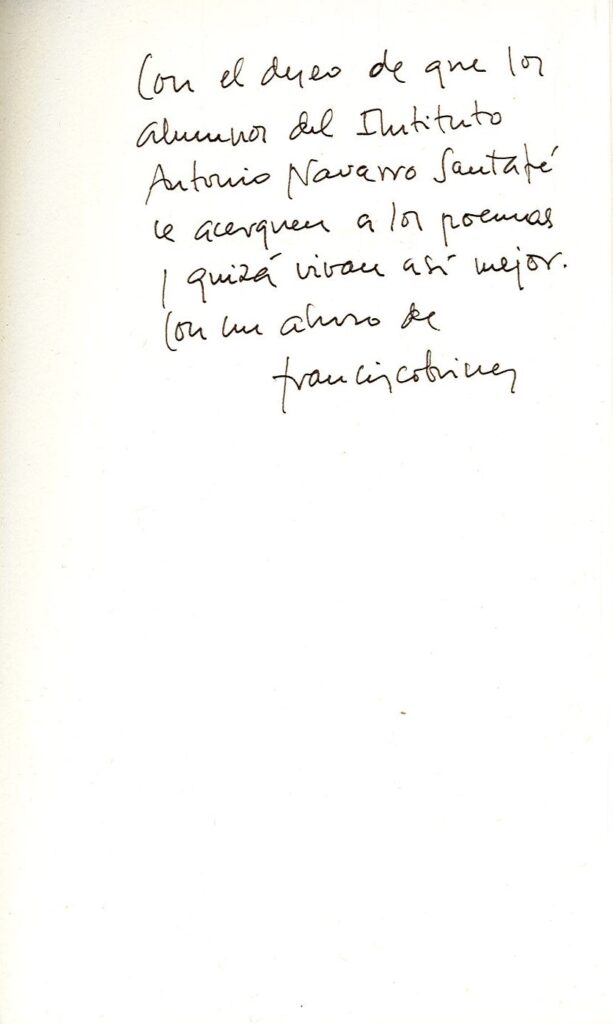 Con el deseo de que los
alumnos del Instituto
Antonio Navarro Santafé
se acerquen a los poemas
y quizá vivan así mejor.
Con un abrazo de
francisco brines